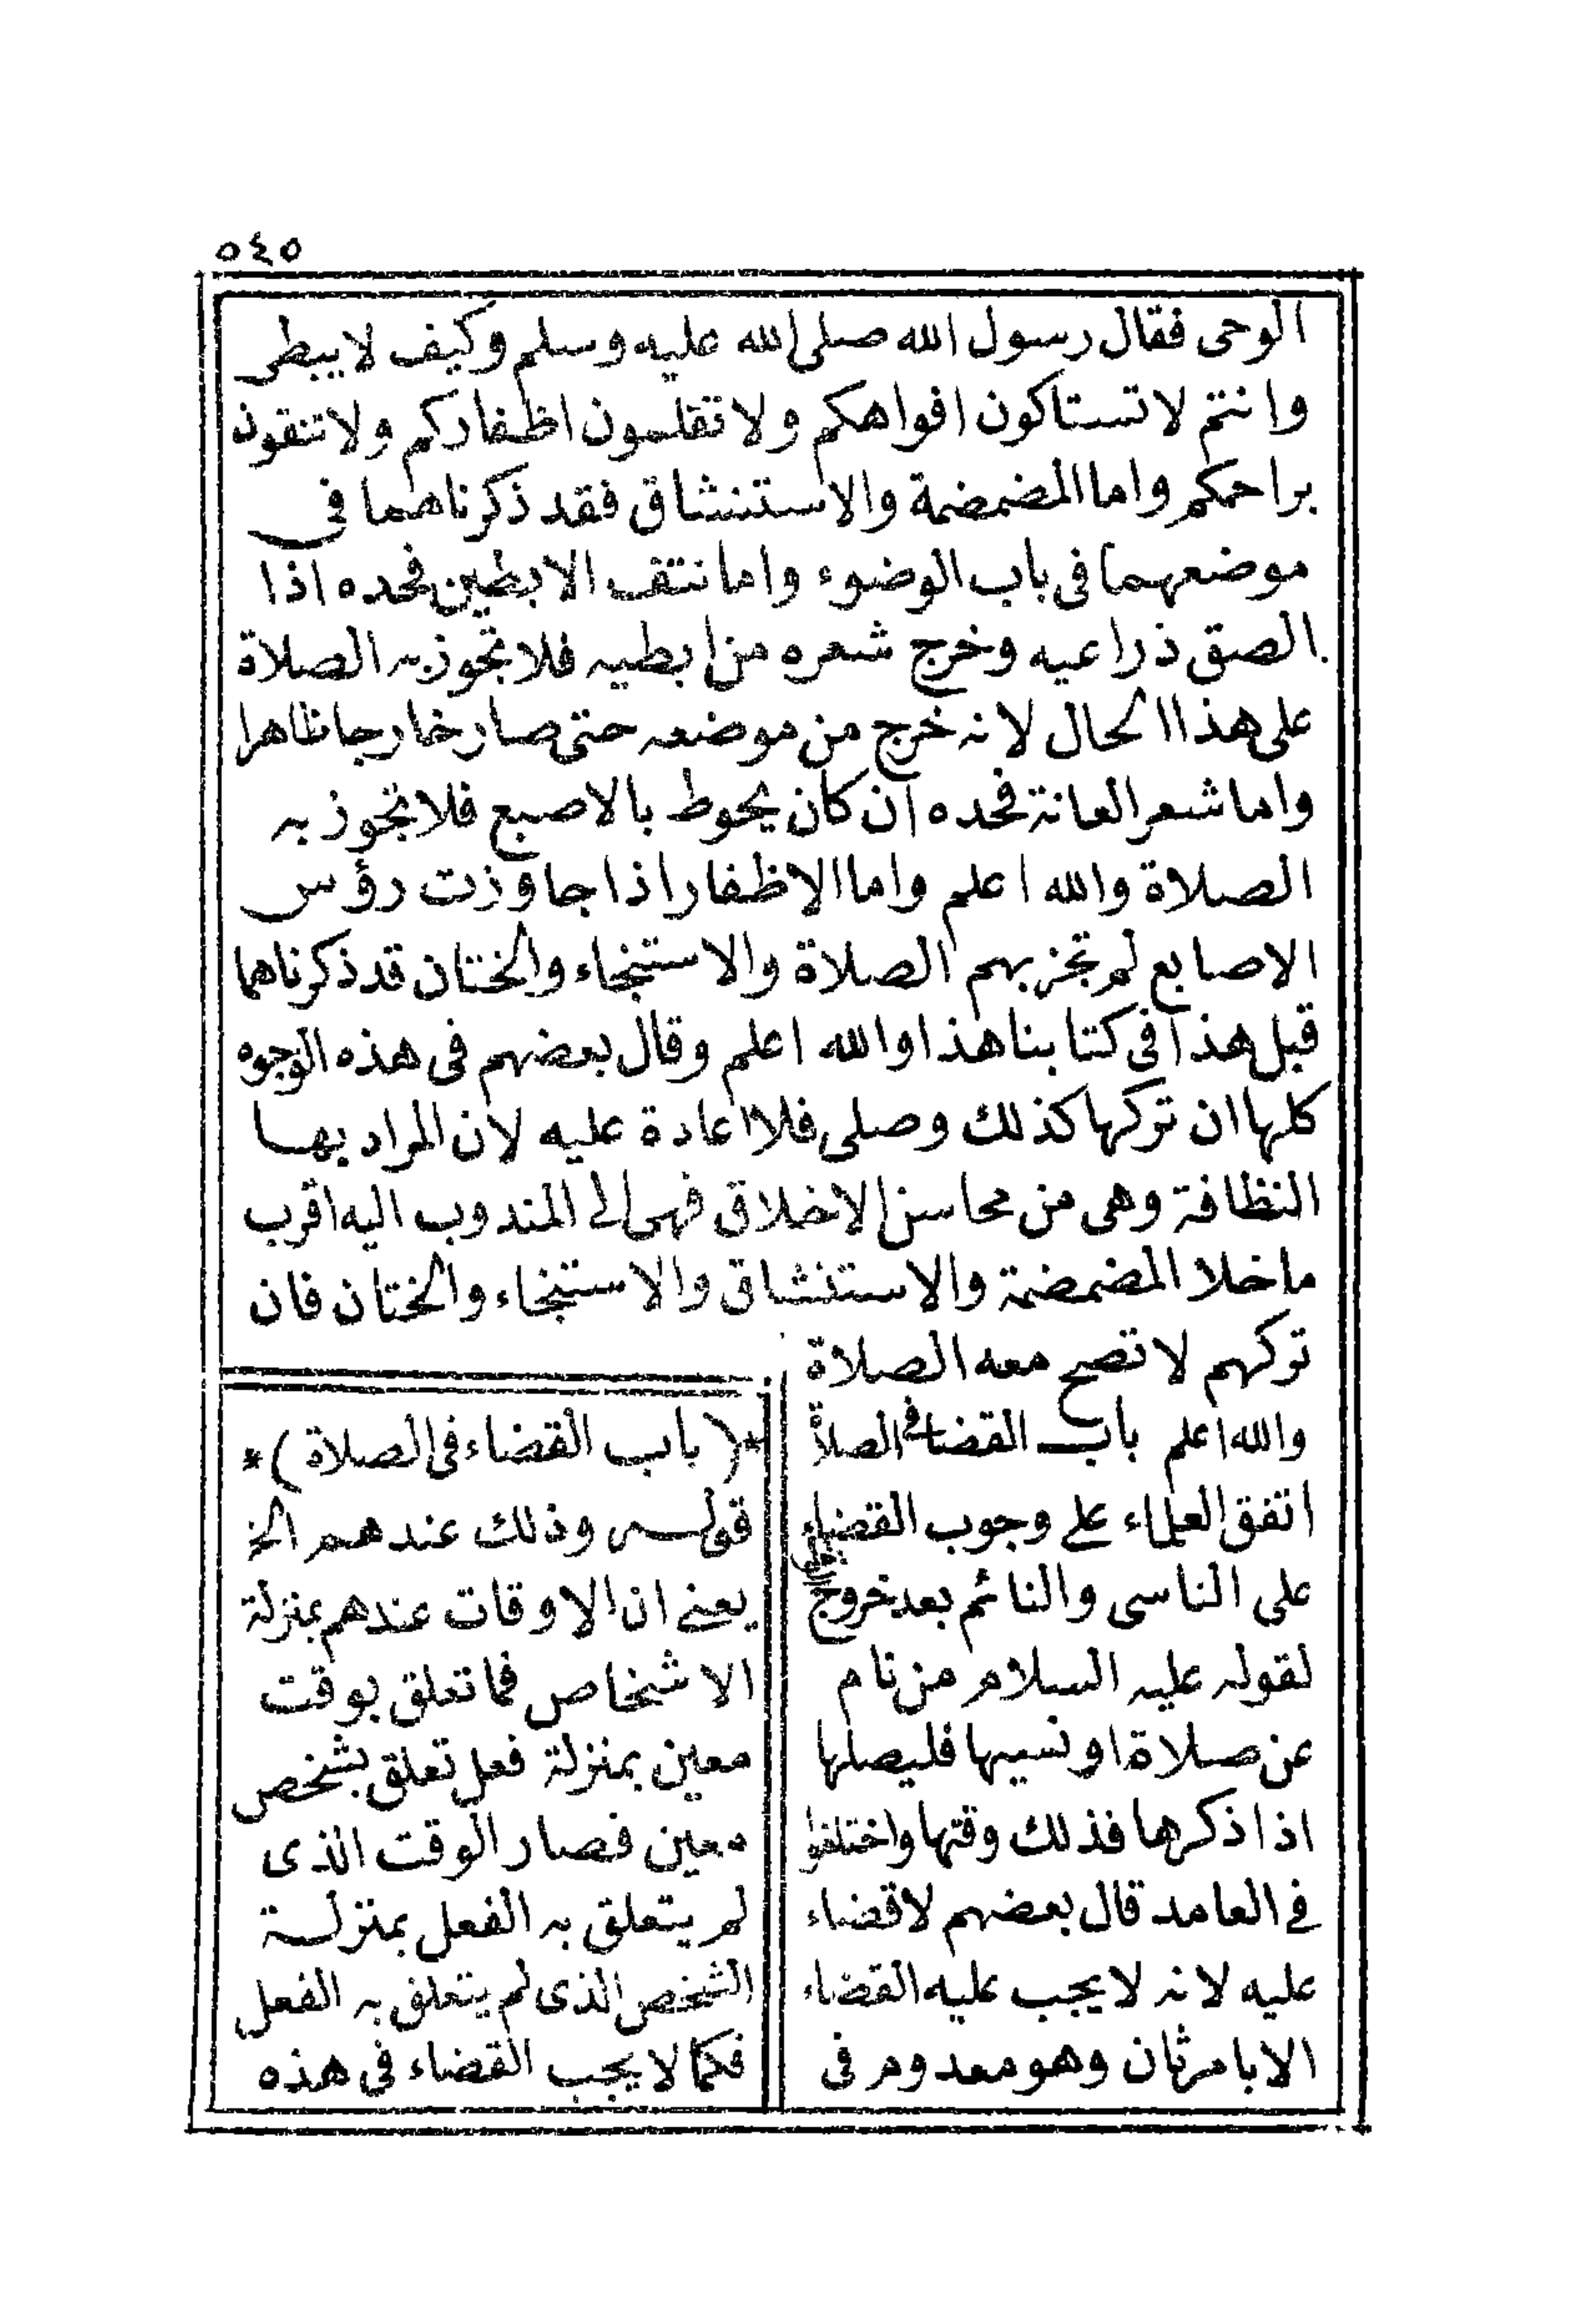 ٥٤٥
الوحى فقال رسول الله صلى الله عليه وسلم وكيف لا يبطى
وانتم لا تستاكون افواهكم ولا تقلمون اظفاركم ولا تنقون
براحمكم واما المضمضة والاستنشاق فقد ذكرناهما فى
موضعهما فى باب الوضوء واما نتف الابطين فحده اذا
الصق ذراعيه وخرج شعره من ابطيه فلا تجوز به الصلاة
على هذا الحال لانه خرج من موضعه حتى صار خارجا ظاهرا
واما شعر العانة فحده ان كان يحوط بالاصبع فلا تجوز به
الصلاة والله اعلم واما الاظفار اذا جاوزت رؤس
الاصابع لم تجز بهم الصلاة والاستنجاء والختان قد ذكرناهما
قبل هذا فى كتابنا هذا والله اعلم وقال بعضهم فى هذه الوجوه
كلها ان تركها كذلك وصلى فلا اعادة عليه لان المراد بها
النظافة وهى من محاسن الاخلاق فهى الى المندوب اليه اقرب
ماخلا المضمضة والاستنشاق والاستنجاء والختان فان
تركهم لا تصح معه الصلاة
والله اعلم باب القضا فى الصلاة
اتفق العلماء على وجوب القضاء
على الناسى والنائم بعد خروج
لقوله عليه السلام من نام
عن صلاة او نسيها فليصلها
اذا ذكرها فذلك وقتها واختلفوا
فى العامد قال بعضهم لا قضاء
عليه لانه لا يجب عليه القضاء
الا بامر ثان وهو معدوم فى
*(باب القضاء فى الصلاة)*
قوله وذلك عندهم الخ
يعنى ان الاوقات عندهم بمنزلة
الاشخاص فما تعلق بوقت
معين بمنزلة فعل تعلق بشخص
معين فصار الوقت الذى
لم يتعلق به الفعل بمنزلة
الشخص الذى لم يتعلق به الفعل
فكما لا يجب القضاء فى هذه